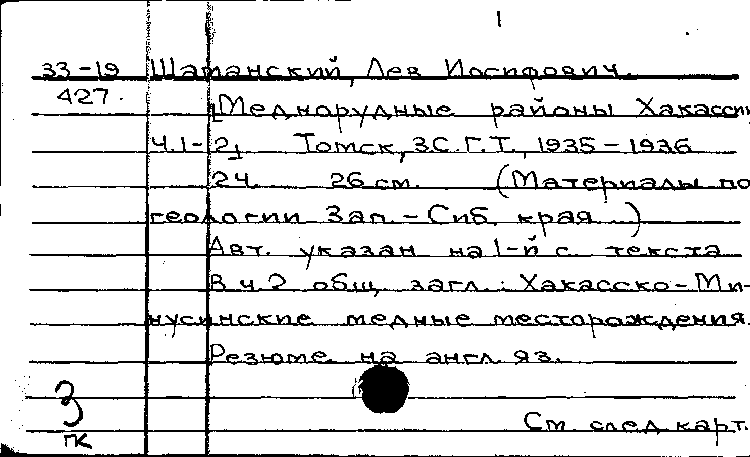 1
33-19 Шаманский, Лев Иосифович.
427. [Меднорудные районы Хакассии
Ч.1-2] Томск, ЗС.Г.Т., 1935-1936
2ч. 26 см. (Материалы по
геологии Зап.-Сиб. края...)
Авт. указан на 1-й с. текста
В ч.2 общ. загл.: Хакасско-Ми-
нусинские медные месторождения.
Резюме на англ. яз.
3
ГК
См. след. карт.